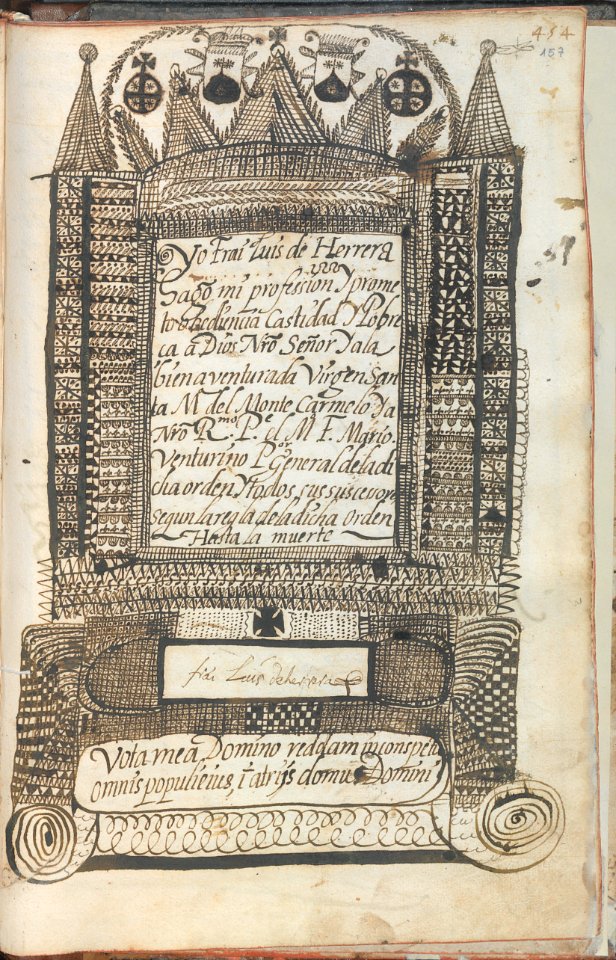 454
157
Yo Frai Luis de Herrera
Hago mi profission Y prome
to obediencia Castidad Y Pobre
ca a Dios Nrō Señor Y a la
bien aventurada Virgen San
ta Mᵃ del Monte Carmelo Y a
Nrō Rᵐᵒ. Pᵉ el M F. Mario.
Venturino Pᵒʳ General de la di
cha orden Y todos sus suscevor
segun la regla de la dicha Orden
Hasta la muerte
frai Luis deherrera
Vota mea Domino reddam in conspectu
omnis populi eius, ī atrijs domus Domini